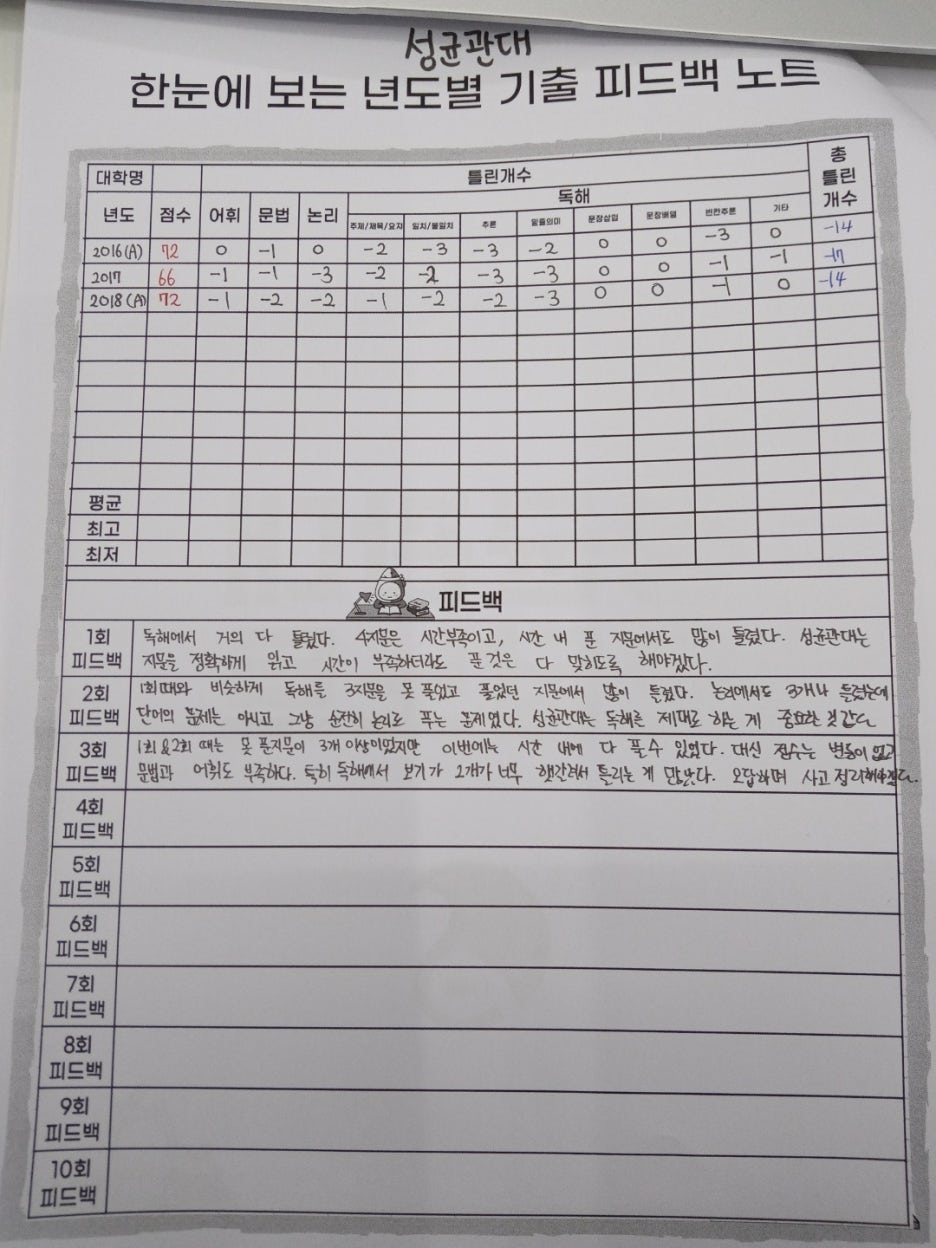 성균관대
한눈에 보는 년도별 기출 피드백 노트
대학명 틀린개수 총 틀린 개수
독해
년도 점수 어휘 문법 논리 주제/제목/요지 일치/불일치 추론 밑줄의미 문장삽입 문장배열 빈칸추론 기타
2016(A) 72 0 -1 0 -2 -3 -3 -2 0 0 -3 0 -14
2017 66 -1 -1 -3 -2 -2 -3 -3 0 0 -1 -1 -17
2018(A) 72 -1 -2 -2 -1 -2 -2 -3 0 0 -1 0 -14
평균
최고
최저
피드백
1회 피드백
독해에서 거의 다 틀렸다. 4지문은 시간부족이고, 시간 내 푼 지문에서도 많이 틀렸다. 성균관대는
지문을 정확하게 읽고 시간이 부족하더라도 푼것은 다 맞히도록 해야겠다.
2회 피드백
1회때와 비슷하게 독해를 3지문을 못 풀었고 풀었던 지문에서 많이 틀렸다. 논리에서도 3개나 틀렸는데
단어의 문제는 아니고 그냥 순전히 논리로 푸는 문제였다. 성균관대는 독해를 제대로 하는 게 중요한 것 같다
3회 피드백
1회&2회 때는 못 푼지문이 3개 이상이었지만 이번에는 시간 내에 다 풀수 있었다. 대신 점수는 변동이 없고
문법과 어휘도 부족하다. 특히 독해에서 보기가 2개가 너무 헷갈려서 틀리는 게 많았다. 오답하며 사고 정리해야겠다.
4회 피드백
5회 피드백
6회 피드백
7회 피드백
8회 피드백
9회 피드백
10회 피드백